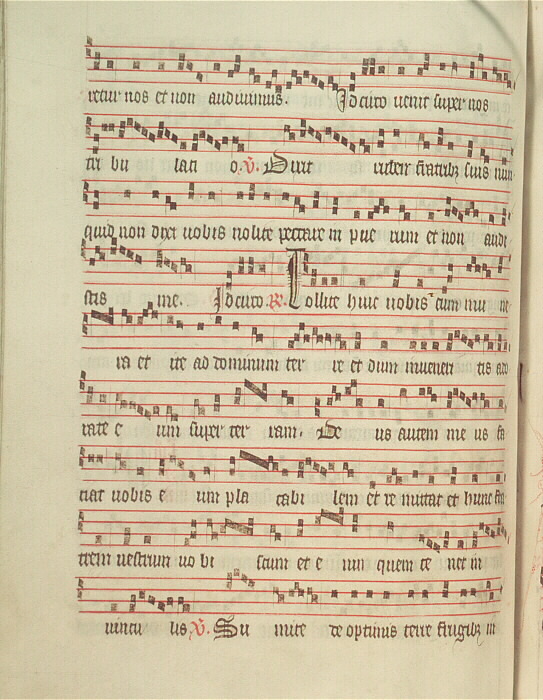 retur nos et non audiuimus. Idcirco uenit super nos
tri bu lati o. V. Dixit ruben fratribz suis num
quid non dixi uobis nolite peccare in pue rum et non audi
stis me. Idcirco. R. Tollite hinc uobis cum mu ne
ra et ite ad dominum ter re et dum inueneri tis ado
rate e um super ter ram. De us autem me us fa
ciat uobis e um pla cabi lem et re mittat et hunc fra
trem uestrum uo bi scum et e um quem te net in
uincu lis V. Su mite de optimis terre frugibz in